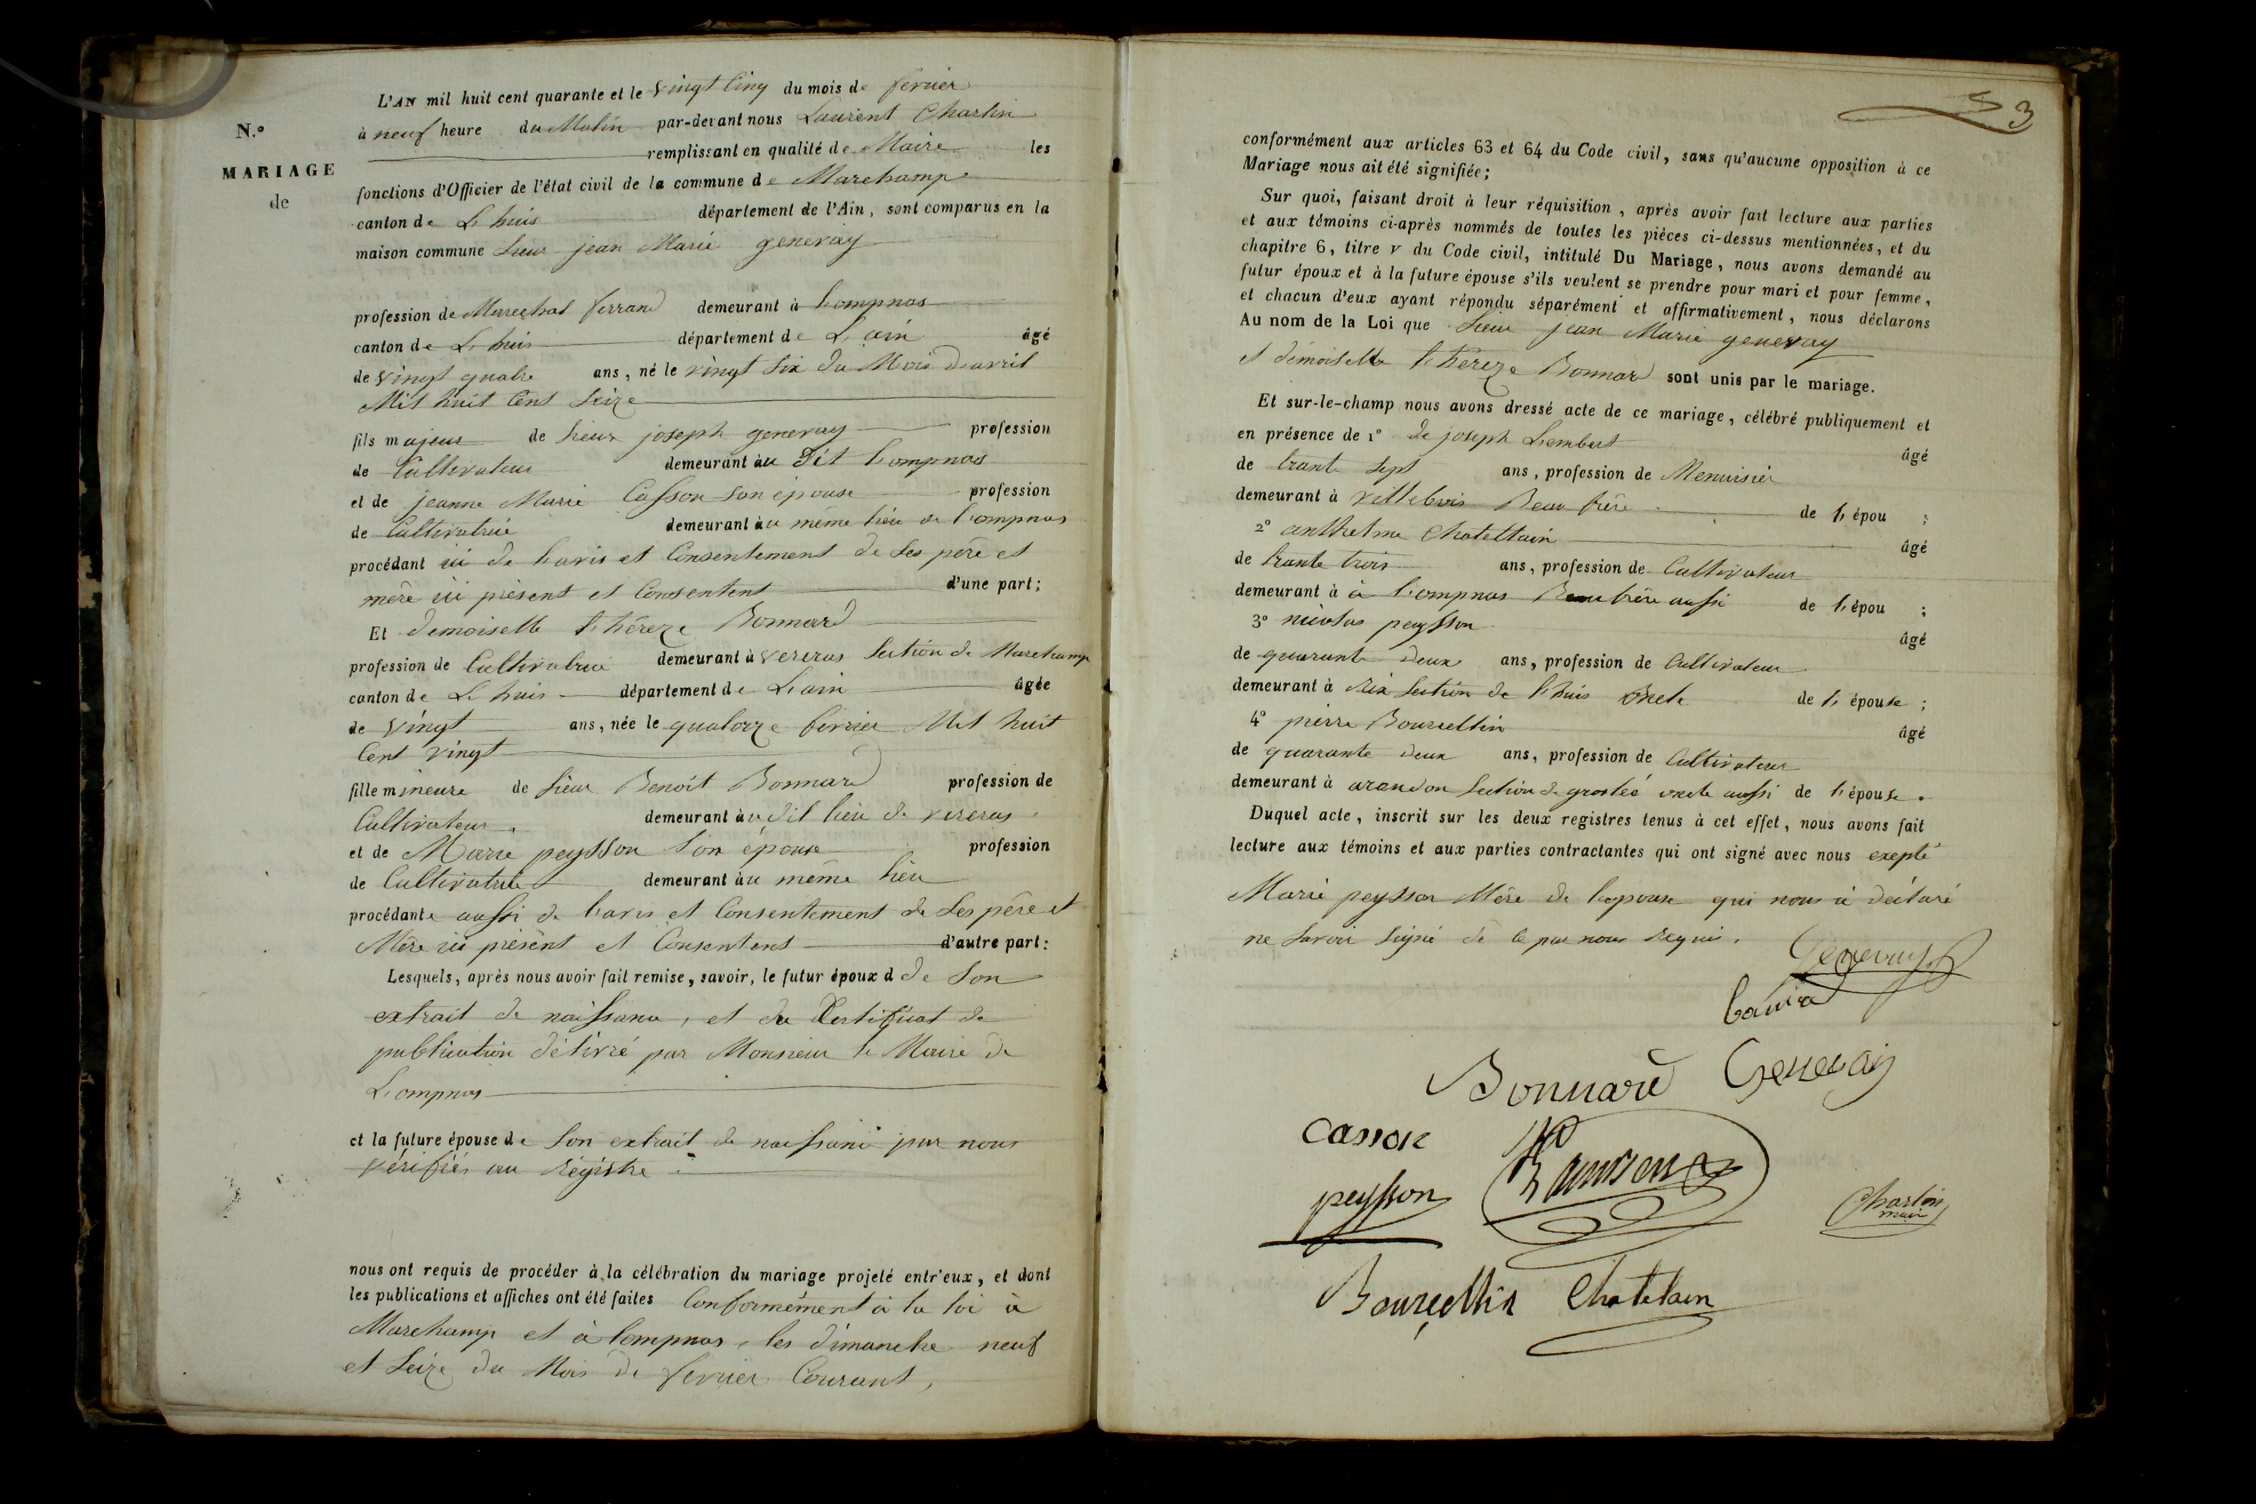 N.º
MARIAGE
de
L'AN mil huit cent quarante et le vingt cinq du mois de fevrier
à neuf heure du Matin par-devant nous Laurent Charlin
remplissant en qualité de Maire les
fonctions d'Officier de l'état civil de la commune de Marchamp
canton de Lhuis département de l'Ain, sont comparus en la
maison commune Sieur jean Marie genevay
profession de Marechal ferrand demeurant à Lompnas
canton de Lhuis département de Lain âgé
de vingt quatre ans, né le vingt six du Mois davril
Mil huit Cent Seize
fils majeur de Sieur joseph genevay profession
de Cultivateur demeurant au dit Lompnas
et de jeanne Marie Casson Son épouse profession
de Cultivatrice demeurant au même lieu de Lompnas
procédant ici de lavis et Consentement de Ses père et
mère ici présent et Consentent d'une part;
Et demoiselle thérèze Bonnard
profession de Cultivatrice demeurant à vereras Section de Marchamp
canton de Lhuis département de Lain âgée
de vingt ans, née le quatorze fevrier Mil huit
Cent vingt
fille mineure de Sieur Benoit Bonnard profession de
Cultivateur demeurant au dit lieu de vereras
et de Marie peysson Son épouse profession
de Cultivatrice demeurant au même lieu
procédante aussi de lavis et Consentement de Ses père et
Mère ici présent et Consentent d'autre part:
Lesquels, après nous avoir fait remise, savoir, le futur époux d de Son
extrait de naissance, et du Certificat de
publication délivré par Monsieur le Maire de
Lompnas
et la future épouse de Son extrait de naissance par nous
vérifiés au Régistre
nous ont requis de procéder à la célébration du mariage projeté entr'eux, et dont
les publications et affiches ont été faites Conformément à la loi à
Marchamp et à Lompnas, les dimanche neuf
et Seize du Mois de fevrier Courant,
53
conformément aux articles 63 et 64 du Code civil, sans qu'aucune opposition à ce
Mariage nous ait été signifiée;
Sur quoi, faisant droit à leur réquisition, après avoir fait lecture aux parties
et aux témoins ci-après nommés de toutes les pièces ci-dessus mentionnées, et du
chapitre 6, titre v du Code civil, intitulé Du Mariage, nous avons demandé au
futur époux et à la future épouse s'ils veulent se prendre pour mari et pour femme,
et chacun d'eux ayant répondu séparément et affirmativement, nous déclarons
Au nom de la Loi que Sieur jean Marie genevay
et démoiselle thérèze Bonnard sont unis par le mariage.
Et sur-le-champ nous avons dressé acte de ce mariage, célébré publiquement et
en présence de 1º de joseph Lembert âgé
de trante Sept ans, profession de Menuisier
demeurant à villebois Beau frère de l'épou ;
2º anthelme Chatellain âgé
de trante trois ans, profession de Cultivateur
demeurant à à Lompnas Beau frère aussi de l'épou ;
3º nicolas peysson âgé
de quarante deux ans, profession de Cultivateur
demeurant à rix Section de lhuis oncle de l'épouse ;
4º pierre Bourcellin âgé
de quarante deux ans, profession de Cultivateur
demeurant à arandon Section de groslée oncle aussi de l'épouse.
Duquel acte, inscrit sur les deux registres tenus à cet effet, nous avons fait
lecture aux témoins et aux parties contractantes qui ont signé avec nous exepté
Marie peysson Mère de lepouse qui nous à déclaré
ne Savoir Signé de ce par nous Requis.
Genevay
Bonnard Genevay
Casson
peysson
Charlin
maire
Bourcellin Chatelain